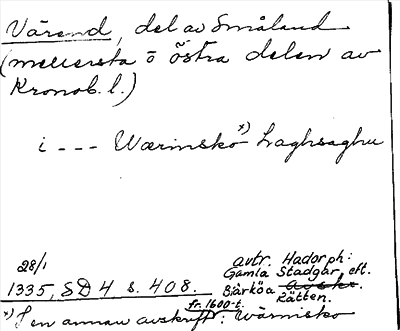 Värend, del av Småland
(mellersta o östra delen av
Kronob. l.)
i --- Wærinsko x) Laghsaghu
28/1
1335, SD 4 s. 408.
avtr. Hadorph:
Gamla Stadgar, eft.
Biärköa
Rätten.
fr. 1600-t.
x) I en annan avskrift: Wärnisko